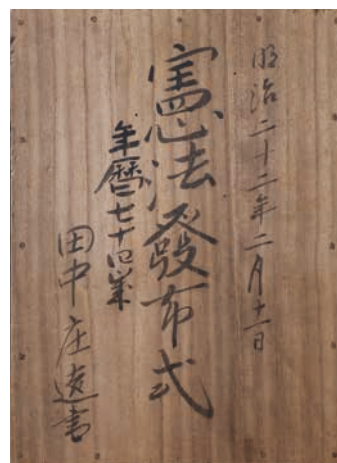 明治二十二年二月十一日
憲法發布式
年曆七十四歳
田中庄遠書